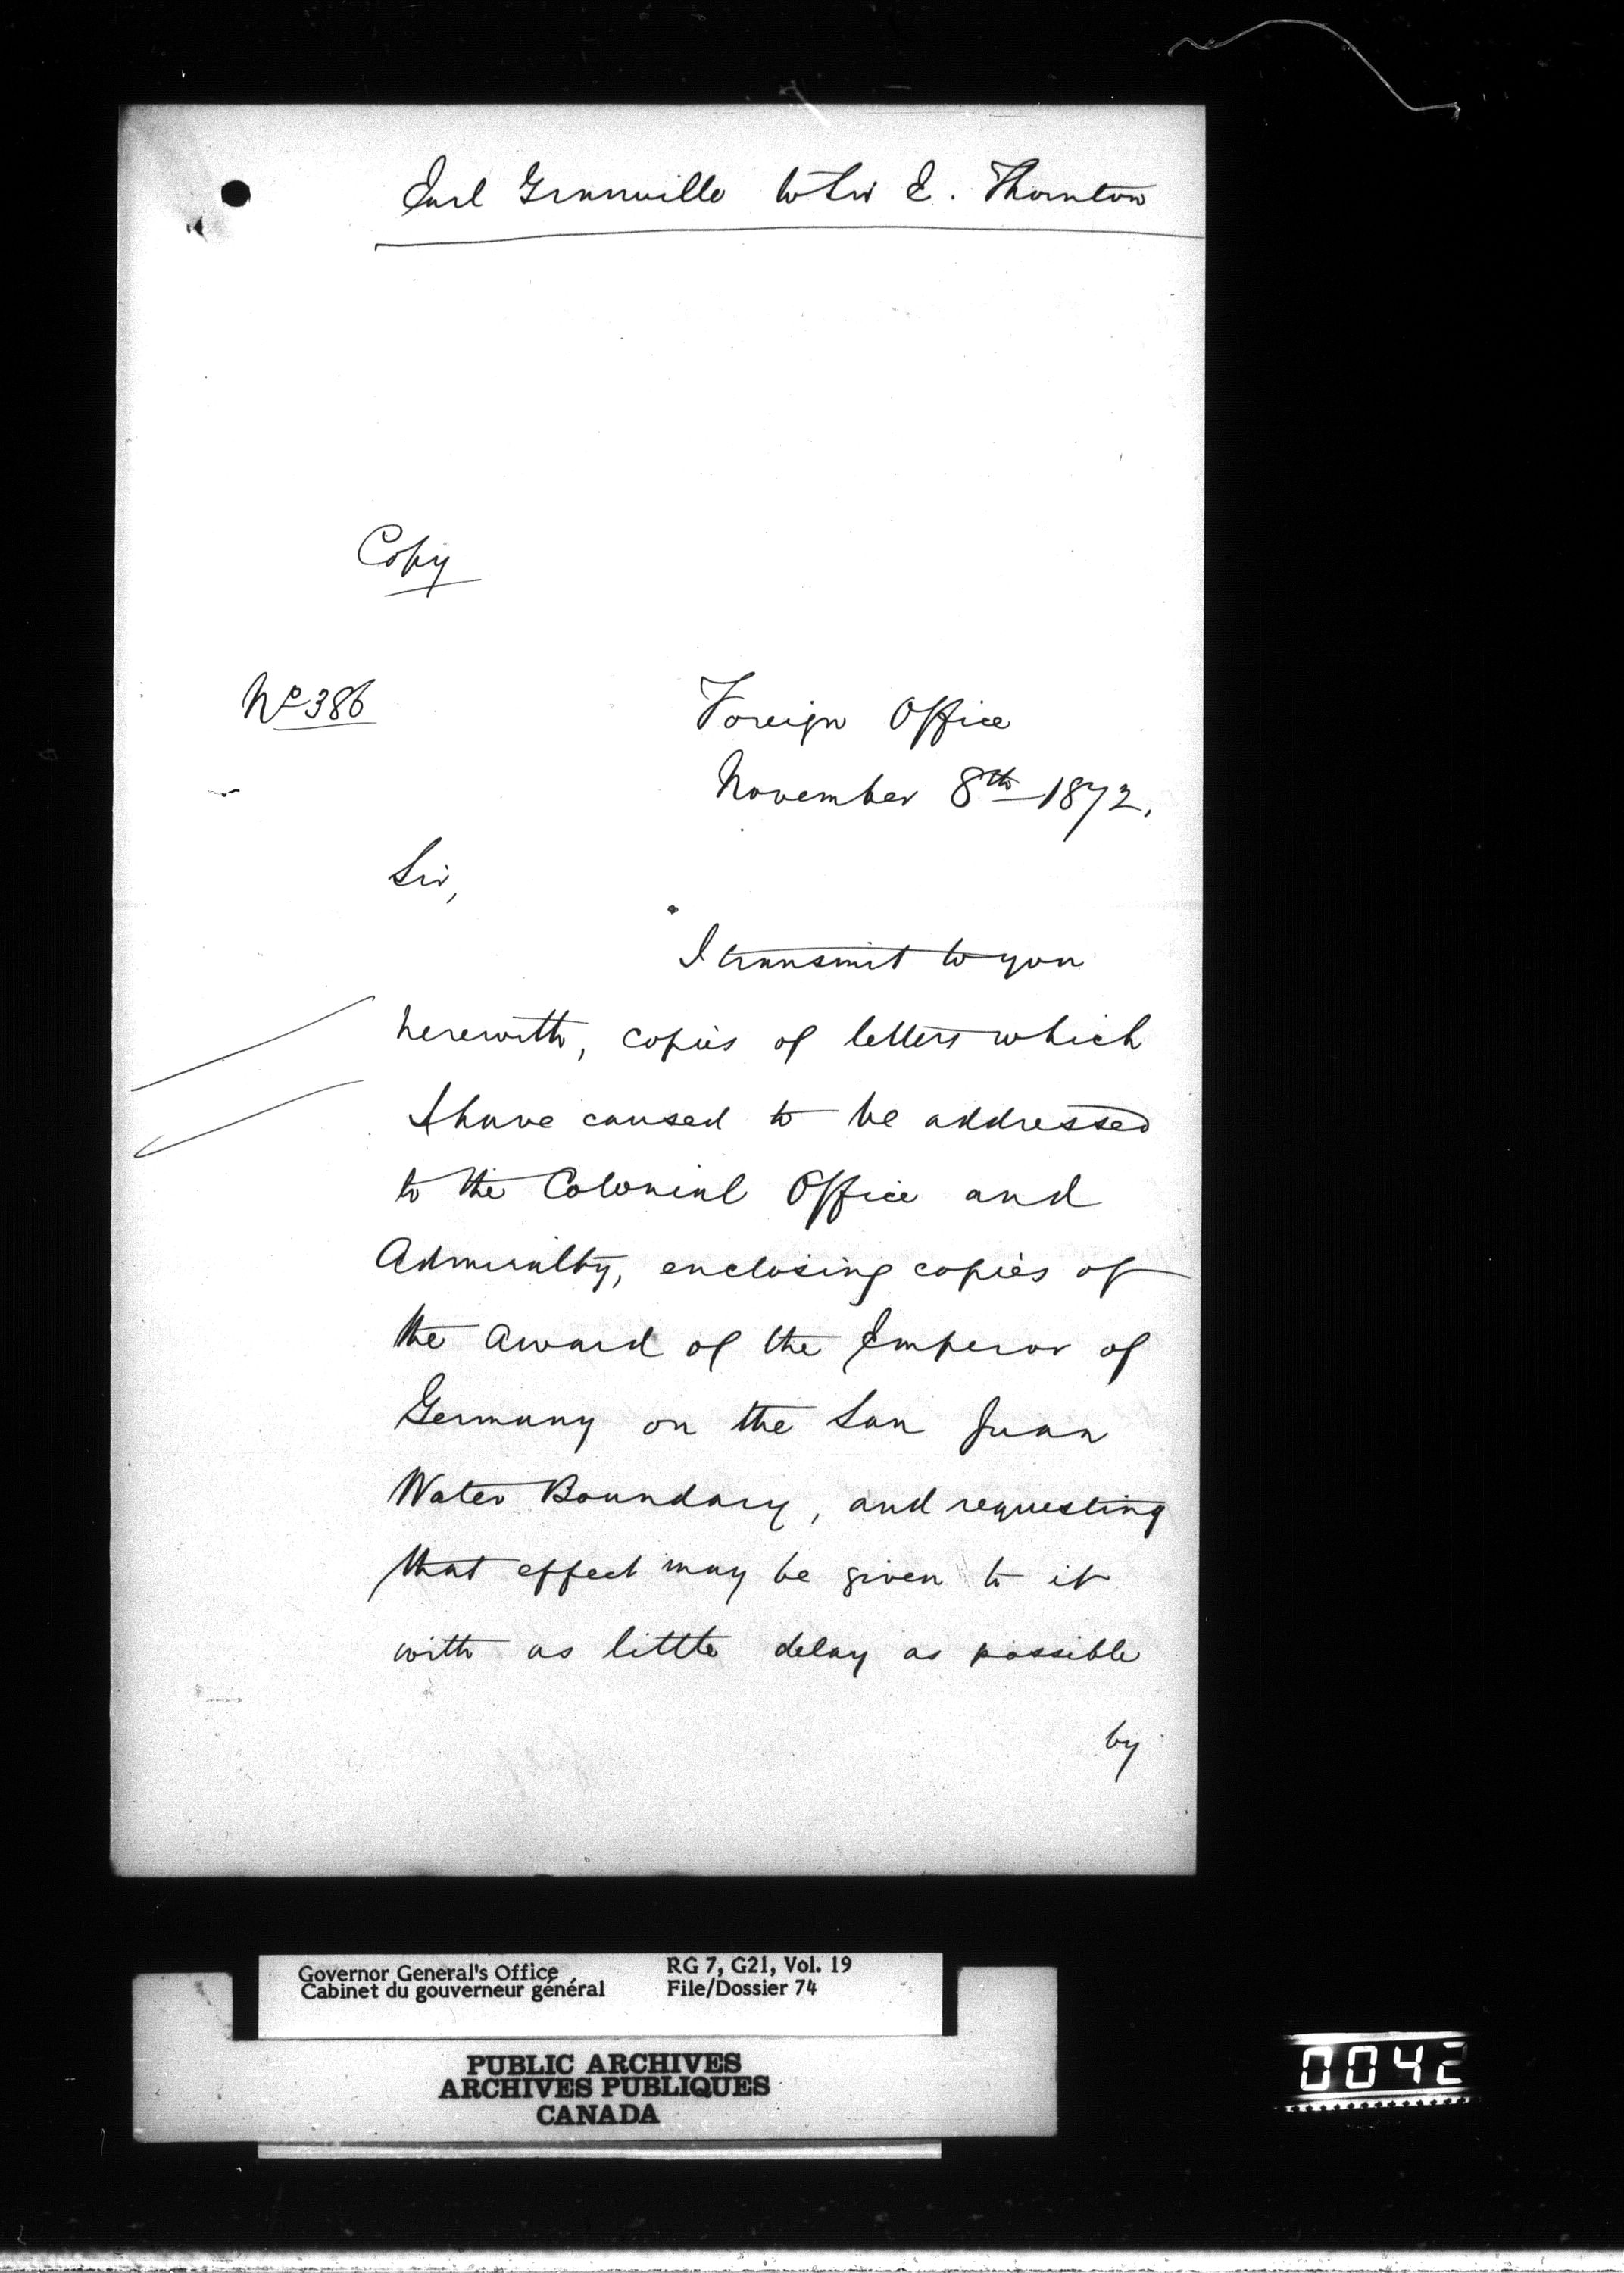 Earl Granville to Sir E. Thornton
Copy
No 386
Foreign Office
November 8th 1872.
Sir,
I transmit to you
herewith, copies of letters which
I have caused to be addressed
to the Colonial Office and
Admiralty, enclosing copies of
the Award of the Emperor of
Germany on the San Juan
Water Boundary, and requesting
that effect may be given to it
with as little delay as possible
by
Governor General's Office
Cabinet du gouverneur général
RG 7, G21, Vol. 19
File/Dossier 74
PUBLIC ARCHIVES
ARCHIVES PUBLIQUES
CANADA
0042